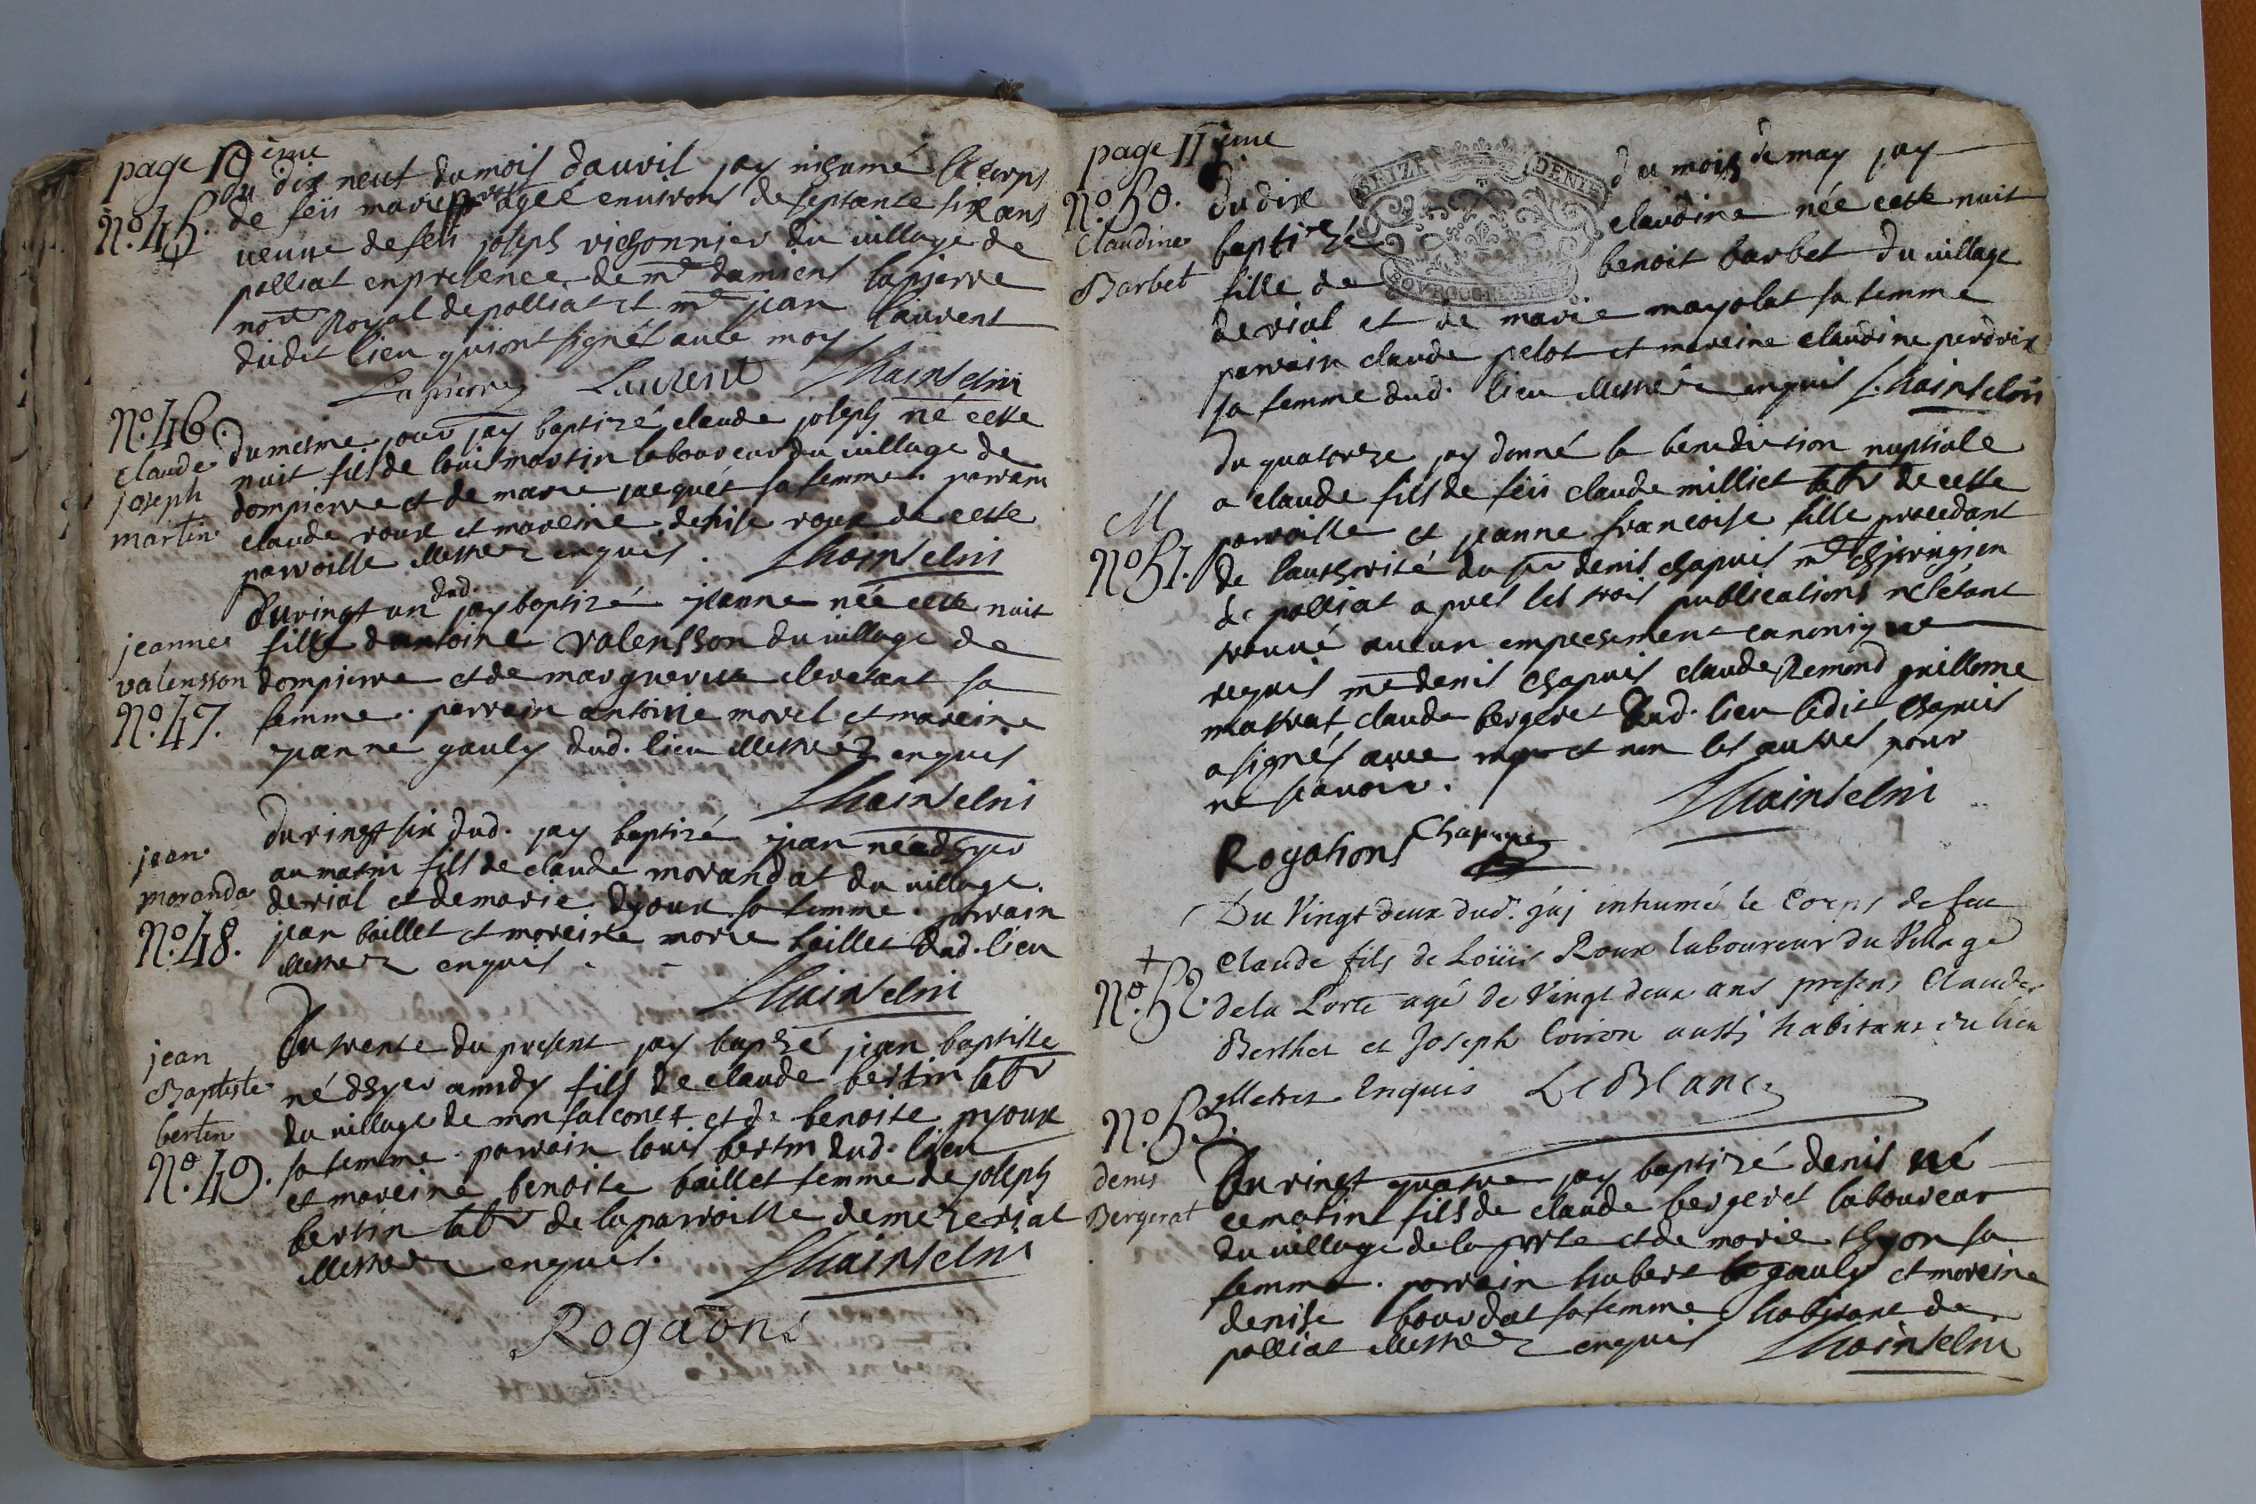 page 10 ème
N.° 45. du dix neuf du mois dauril jay inhumé le corps
de feü marie agée enuirons de septante six ans
ueuue de feü joseph richonnier du uillage de
polliat en presence de m.e damiens lapierre
no.re Royal de polliat et m.e jean laurent
dudit lieu qui ont signé auec moy.
Lapierre Laurent Lhainselni
N.° 46.
claude joseph martin
du mesme jour jay baptizé claude joseph né cette
nuit fils de louis martin laboureur du uillage de
dompierre et de marie jacquet sa femme. parrain
claude roux et mareine denise roux de cette
parroisse illettréz enquis. Lhainselni
jeanne valensson
N.° 47.
du vingt un dud. jay baptizé jeanne née cette nuit
fille dantoine valensson du uillage de
dompierre et de marguerite cleretant sa
femme. parrain antoine morel et mareine
jeanne gauly dud. lieu illettréz enquis
Lhainselni
jean moranda
N.° 48.
du vingt six dud. jay baptizé jean né dhyer
au matin fils de claude morandat du uillage
de rial et de marie djoux sa femme. parrain
jean baillet et mareine marie baillet dud. lieu
illettréz enquis.
Lhainselni
jean Baptiste bertin
N.° 49.
Du trente du present jay baptizé jean baptiste
né dhyer amidy fils de claude bertin labr
du uillage de monfalcont et de benoite pjoux
sa femme. parrain louis bertin dud. lieu
et mareine benoite baillet femme de joseph
bertin labr de la parroisse de mezeriat
illettréz enquis. Lhainselni
Rogaõns
page 11 ème
SEIZE DENIE
BOVRGOGNE BRESSE
N.° 50.
Claudine Barbet
du dix du mois de may jay
baptizé claudine née cette nuit
fille de benoit barbet du uillage
de rial et de marie mayolat sa femme
parrain claude pelot et mareine claudine perdrix
sa femme dud. lieu illettréz enquis Lhainselni
M
N.° 51.
du quatorze jay donné la benediction nuptiale
a claude fils de feü claude milliet labr de cette
parroisse et jeanne francoise fille procedant
de lauthorité du sr denis chapuis m.e chjrurgien
de polliat apres les trois publications ne sétant
trouué aucun empechement canonique
requis m.e denis chapuis claude Remond guillome
matrat claude bergeret dud. lieu ledit chapuis
a signés auec moy et non les autres pour
ne scauoir. Lhainselni
Rogations Chapuys
+
N.° 52.
Du Vingt deux dud. j'aj inhumé le Corps de feu
Claude fils de Loüis Roux laboureur du Village
de la Porte agé de Vingt deux ans presens Claude
Berthet et Joseph Coiron aussi habitans du lieu
illettrés Enquis LeBlanc
N.° 53.
denis Bergerat
Du vingt quatre jay baptizé denis né
ce matin fils de claude bergeret laboureur
du uillage de la porte et de marie thyon sa
femme. parrain hubert gauly et mareine
denise bourdat sa femme habitant de
polliat illettréz enquis Lhainselni